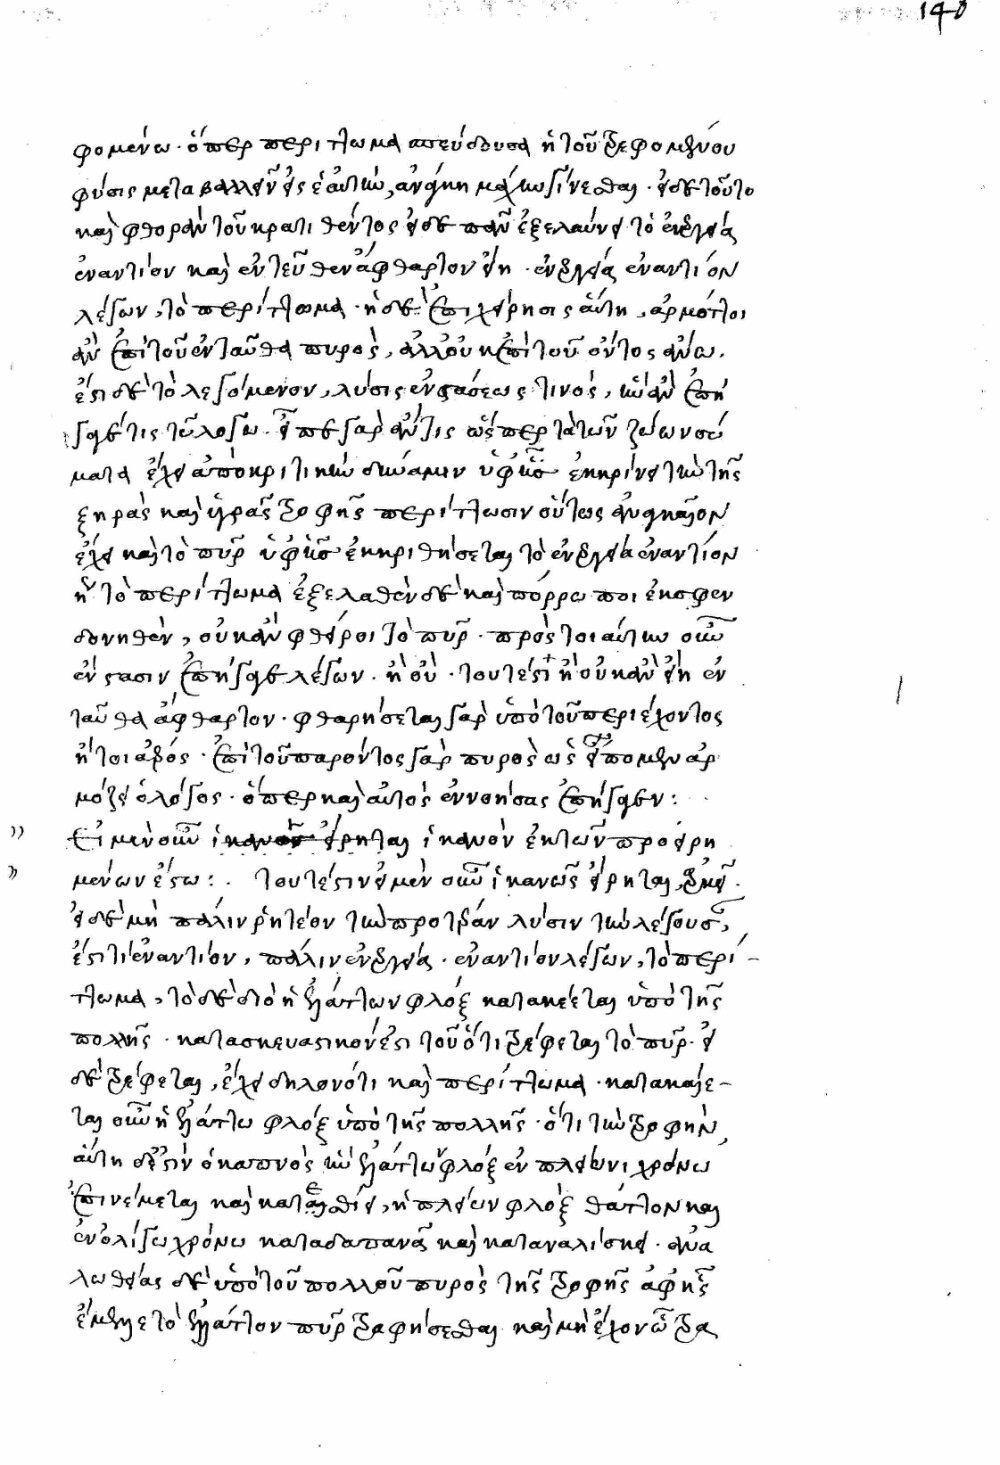 140
φομένω· ὅπερ περίττωμα σπεύδουσα ἡ τοῦ τρεφομένου
φύσις μεταβαλλεῖν εἰς ἑαυτὴν, ἀνάγκη μάχην γίνεσθαι· εἰ δὲ τοῦτο
καὶ φθορὰν τοῦ κρατηθέντος εἰ δὲ πᾶν ἐξελαύνει τὸ ἐνεργείᾳ
ἐναντίον καὶ ἐντεῦθεν ἄφθαρτον εἴη· ἐνεργείᾳ ἐναντίον
λέγων, τὸ περίττωμα· ἡ δὲ ἐπιχείρησις αὕτη, ἁρμόττοι
ἂν ἐπὶ τοῦ ἐνταῦθα πυρὸς, ἀλλ' οὐκ ἐπὶ τοῦ ὄντος ἄνω.
ἔστι δὲ τὸ λεγόμενον, λύσις ἐνστάσεως τινὸς, ἣν ἂν ἐπή
γαγέ τις τῶ λόγω. εἶπε γὰρ ἄν τις ὥσπερ τὰ τῶν ζώων σώ
ματα ἔχει ἀποκριτικὴν δύναμιν ὑφ' ἧς ἐκκρίνει τὴν τῆς
ξηρᾶς καὶ ὑγρᾶς τροφῆς περίττωσιν οὕτως ἀναγκαῖον
ἔχει καὶ τὸ πῦρ ὑφ' ἧς ἐκκριθήσεται τὸ ἐνεργείᾳ ἐναντίον
ἢ τὸ περίττωμα ἐξελαθὲν δὲ καὶ πόρρω ποι ἐκσφεν
δονηθὲν, οὐκ ἂν φθείροι τὸ πῦρ· πρὸς τοιαύτην οὖν
ἔνστασιν ἐπήγαγε λέγων· ἢ οὔ· τουτέστι ἢ οὐκ ἂν εἴη ἐν
ταῦθα ἄφθαρτον· φθαρήσεται γὰρ ὑπὸ τοῦ περιέχοντος
ἤτοι ἀέρος· ἐπὶ τοῦ παρόντος γὰρ πυρὸς ὡς εἴπομεν ἁρ
μόζει ὁ λόγος· ὅπερ καὶ αὐτὸς ἐννοήσας ἐπήγαγεν:
Εἰ μὲν οὖν εἴρηται ἱκανὸν ἐκ τῶν προειρη
μένων ἔστω: τουτέστιν εἰ μὲν οὖν ἱκανῶς εἴρηται,
εἰ δὲ μὴ πάλιν ῥητέον τὴν προτέραν λύσιν τὴν λέγουσαν,
ἔστι τι ἐναντίον, πάλιν ἐνεργείᾳ· ἐναντίον λέγων, τὸ περί-
ττωμα, τὸ δὲ διὸ ἡ ἐλάττων φλὸξ κατακαίεται ὑπὸ τῆς
πολλῆς· κατασκευαστικόν ἐστι τοῦ ὅτι τρέφεται τὸ πῦρ· εἰ
δὲ τρέφεται, ἔχει δηλονότι καὶ περίττωμα· κατακαίε-
ται οὖν ἡ ἐλάττω φλὸξ ὑπὸ τῆς πολλῆς· ὅτι τὴν τροφὴν,
αὕτη δ' ἐστὶν ὁ καπνὸς ἣν ἡ ἐλάττων φλὸξ ἐν πλείονι χρόνω
ἐπινέμεται καὶ κατεσθίει, ἡ πλείων φλὸξ θάττον καὶ
ἐν ὀλίγω χρόνω καταδαπανᾶ καὶ καταναλίσκει· ἀνα
λωθείσης δὲ ὑπὸ τοῦ πολλοῦ πυρὸς τῆς τροφῆς ἀφ' ἧς
ἔμελλε τὸ ἔλαττον πῦρ τραφήσεσθαι καὶ μὴ ἔχον